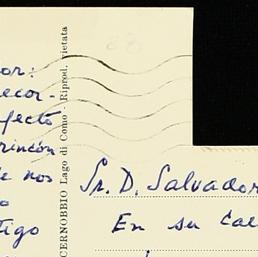 or:
ecor-
fecto
rincón
de nos
o
tigo
CERNOBBIO Lago di Como - Riprod. vietata
Sr. D. Salvador
En su Ca